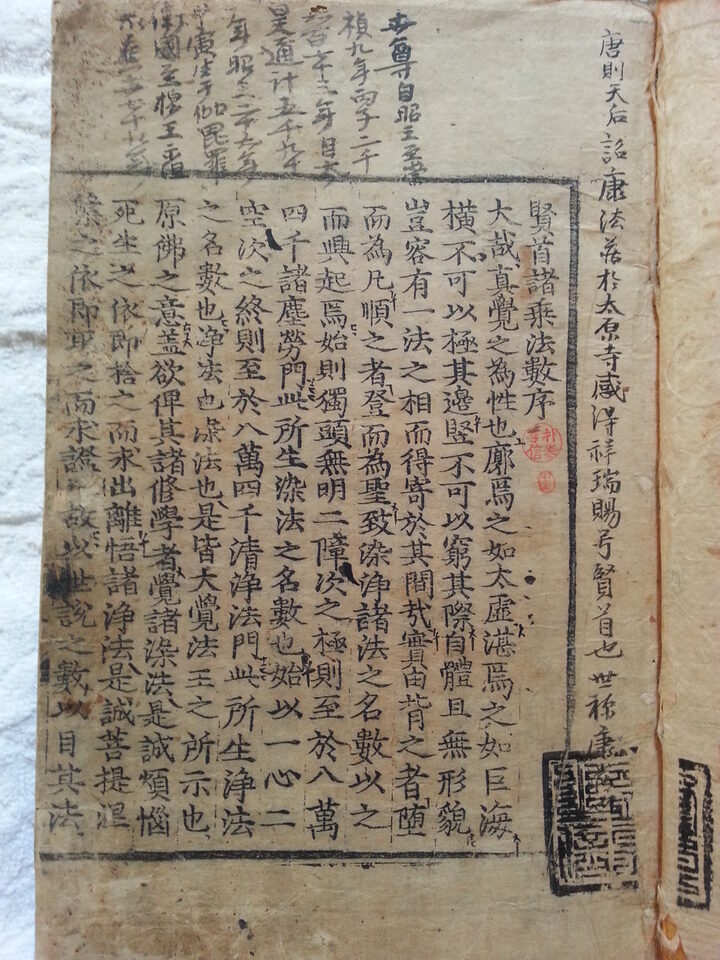 唐則天后詔康法藏於太原寺感得祥瑞賜号賢首也世称康
世尊自昭王至崇
禎九年丙子二千
年昭王二十六年
甲寅生于伽毘羅
賢首諸乗法數序
大哉真覺之為性也廓焉之如太虛湛焉之如巨海
橫不可以極其邊竪不可以窮其際自體且無形貌
豈容有一法之相而得寄於其間㢤實由背之者堕
而為凡順之者登而為聖致染淨諸法之名數以之
而興起焉始則獨頭無明二障次之極則至於八萬
四千諸塵勞門此所生染法之名數也始以一心二
空次之終則至於八萬四千清淨法門此所生淨法
之名數也淨法也染法也是皆大覺法王之所示也
原佛之意盖欲俾其諸修學者覺諸染法是誠煩惱
死生之依即捨之而求出離悟諸淨法是誠菩提涅
槃之依即取之而求證故以世說之數以目其法